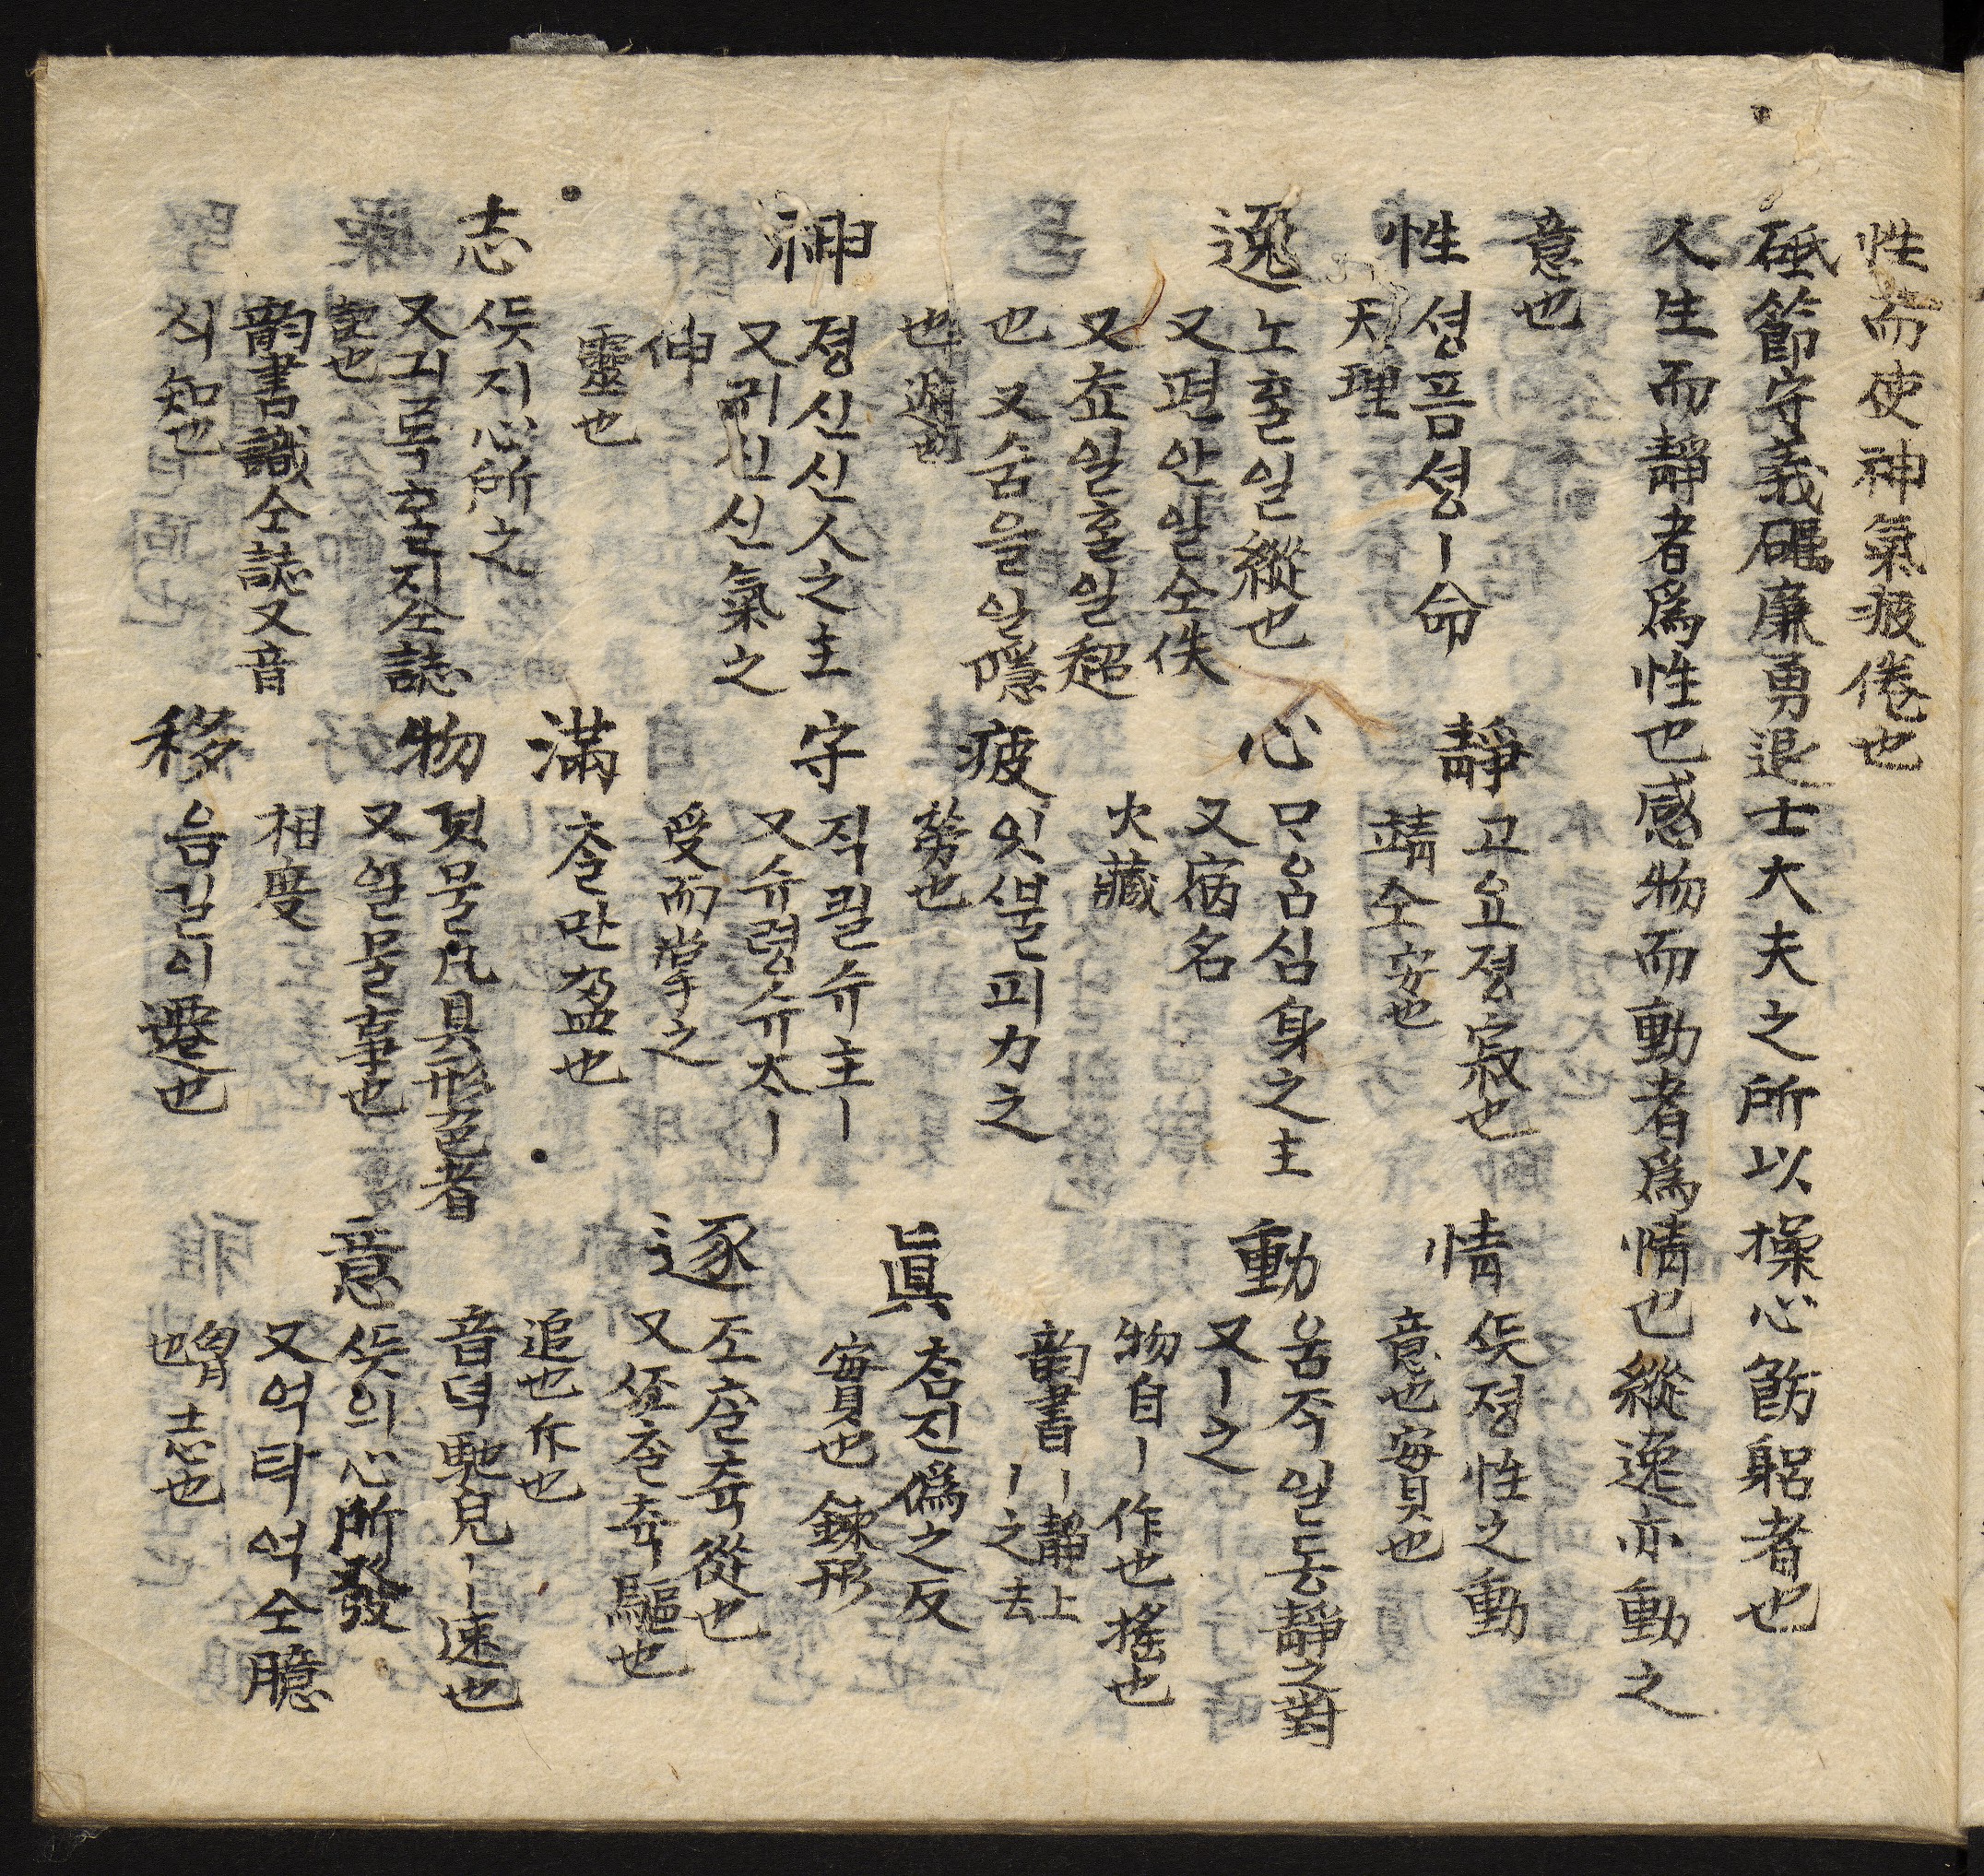 性而使神氣疲倦也
砥節守義礪廉勇退士大夫之所以操心飭躬者也
人生而靜者爲性也感物而動者爲情也縱逸亦動之
意也
性 셩픔셩ㅣ命
天理
靜 고요졍寂也
靖仝安也
情 ᄯᅳᆺ졍性之動
意也實也
逸 노흘일縱也
又편안일仝佚
又쵸일흘일超
也又숨을일隱
也遁也
心 ᄆᆞᄋᆞᆷ심身之主
又病名
火藏
動 움즉일동靜之對
又ㅣ之
物自ㅣ作也搖也
韵書ㅣ靜上
ㅣ之去
神 졍신신人之主
又귀신신氣之
伸
靈也
疲 잇ᄲᅳᆯ피力之
勞也
眞 ᄎᆞᆷ진僞之反
實也鍊形
守 직킬슈主ㅣ
又슈령슈太ㅣ
受而掌之
逐 조ᄎᆞᆯ츅從也
又ᄶᅩᄎᆞᆯ츅驅也
追也斥也
音뎍馳皃ㅣㅣ速也
志 ᄯᅳᆺ지心所之
又긔록ᄒᆞᆯ지仝誌
記也
韵書識仝誌又音
식知也
滿 ᄎᆞᆯ만盈也
物 것물凡具形色者
又일물事也
相度
意 ᄯᅳᆺ의心所發
又억탁억仝臆
胷也志也
移 음길이遷也